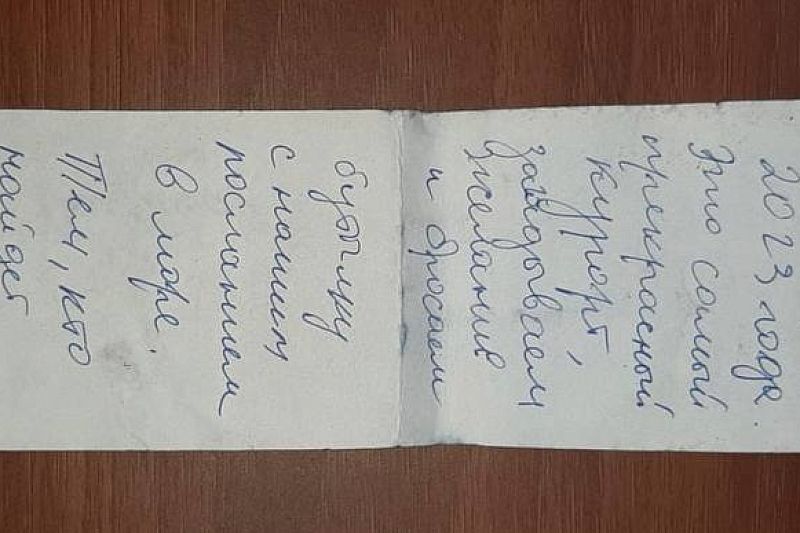 2023 года.
Это самый
прекрасный
курорт,
загадываем
желания
и бросаем
бутылку
с нашим
посланием
в море.
Тем, кто
найдет